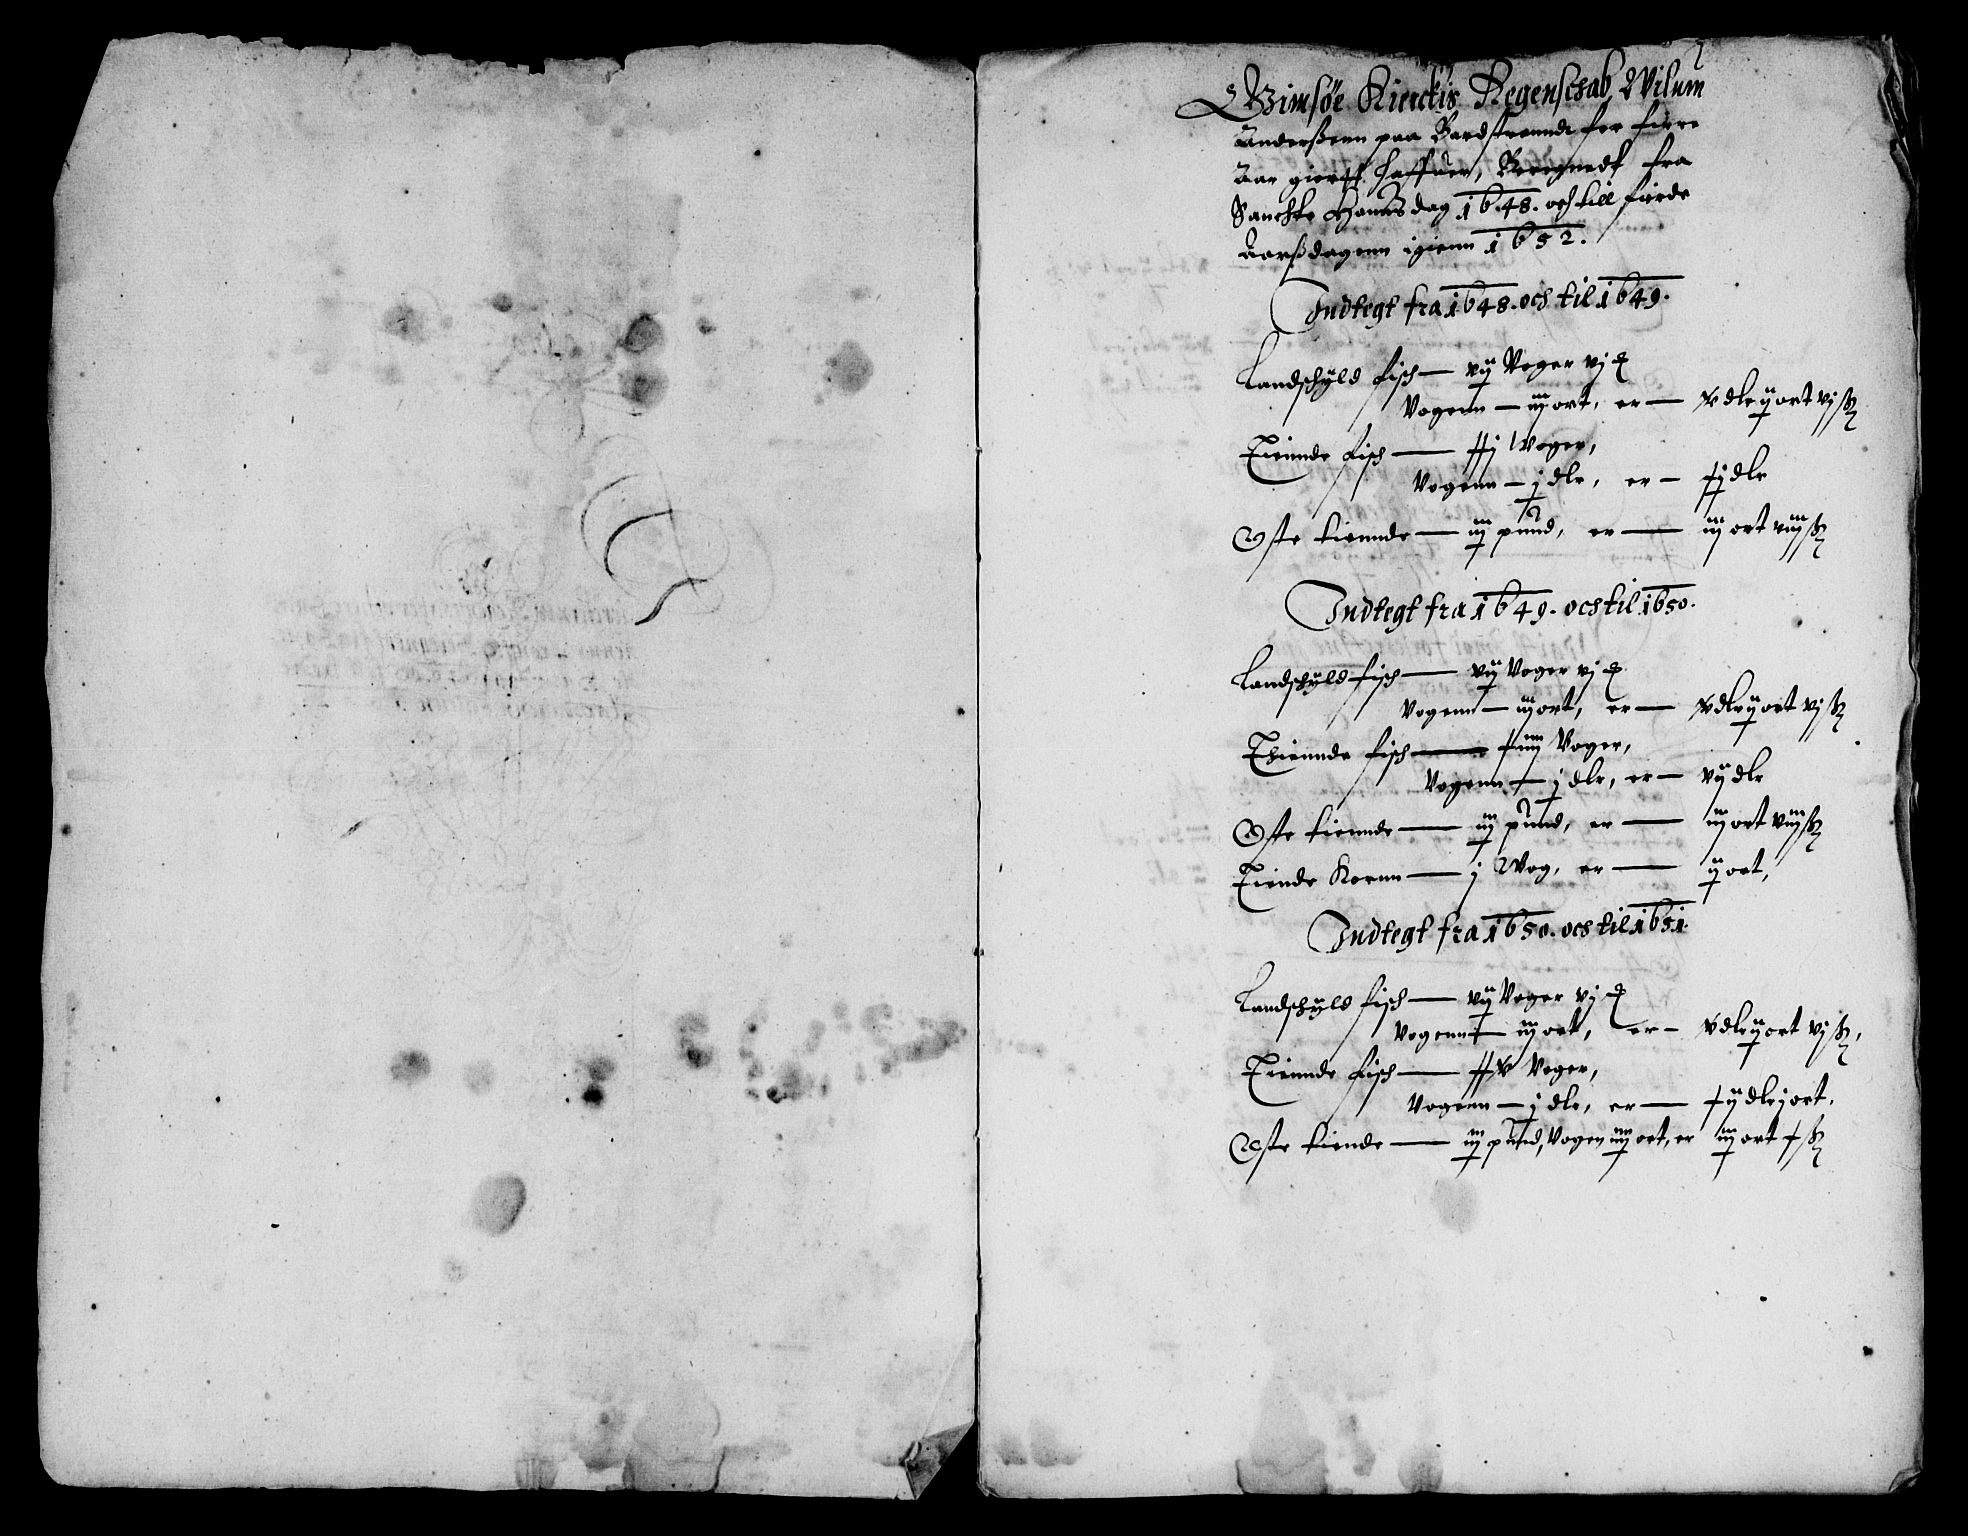 Gimsøe Kierckis Regenschab, Wilum
Anderßenn paa Bardstrannde for fiere
Aar giortt haffuer, Beregnedt fra
Sanchte Hannsdag 1648. och till fierde
Aarßdagenn igienn 1652.
Indtegt fra 1648. och til 1649.
Landschyld fisch — vij Voger vj
Vogenn — iij ort, er — v dlr ij ort vj ß
Tiennde fisch — Voger,
Vogenn — j dlr, er — dlr
Oste tiennde — iij pund, er — iij ort viij ß
Indtegt fra 1649. och til 1650.
Landschyld fisch — vij Voger vj
Vogenn — iij ort, er — v dlr ij ort vj ß
Thiennde fisch — Voger,
Vogenn — j dlr, er — vij dlr
Oste tiennde — iij pund, er — iij ort viij ß
Tiende Kornn — j Wog, er — ij ort,
Indtegt fra 1650. och til 1651.
Landschyld fisch — vij Voger vj
Vogenn — iij ort, er — v dlr ij ort vj ß,
Tiennde fisch — Voger,
Vogenn — j dlr, er — dlr j ort,
Oste tiende — iij pund, Vogen iiij ort, er iij ort ß